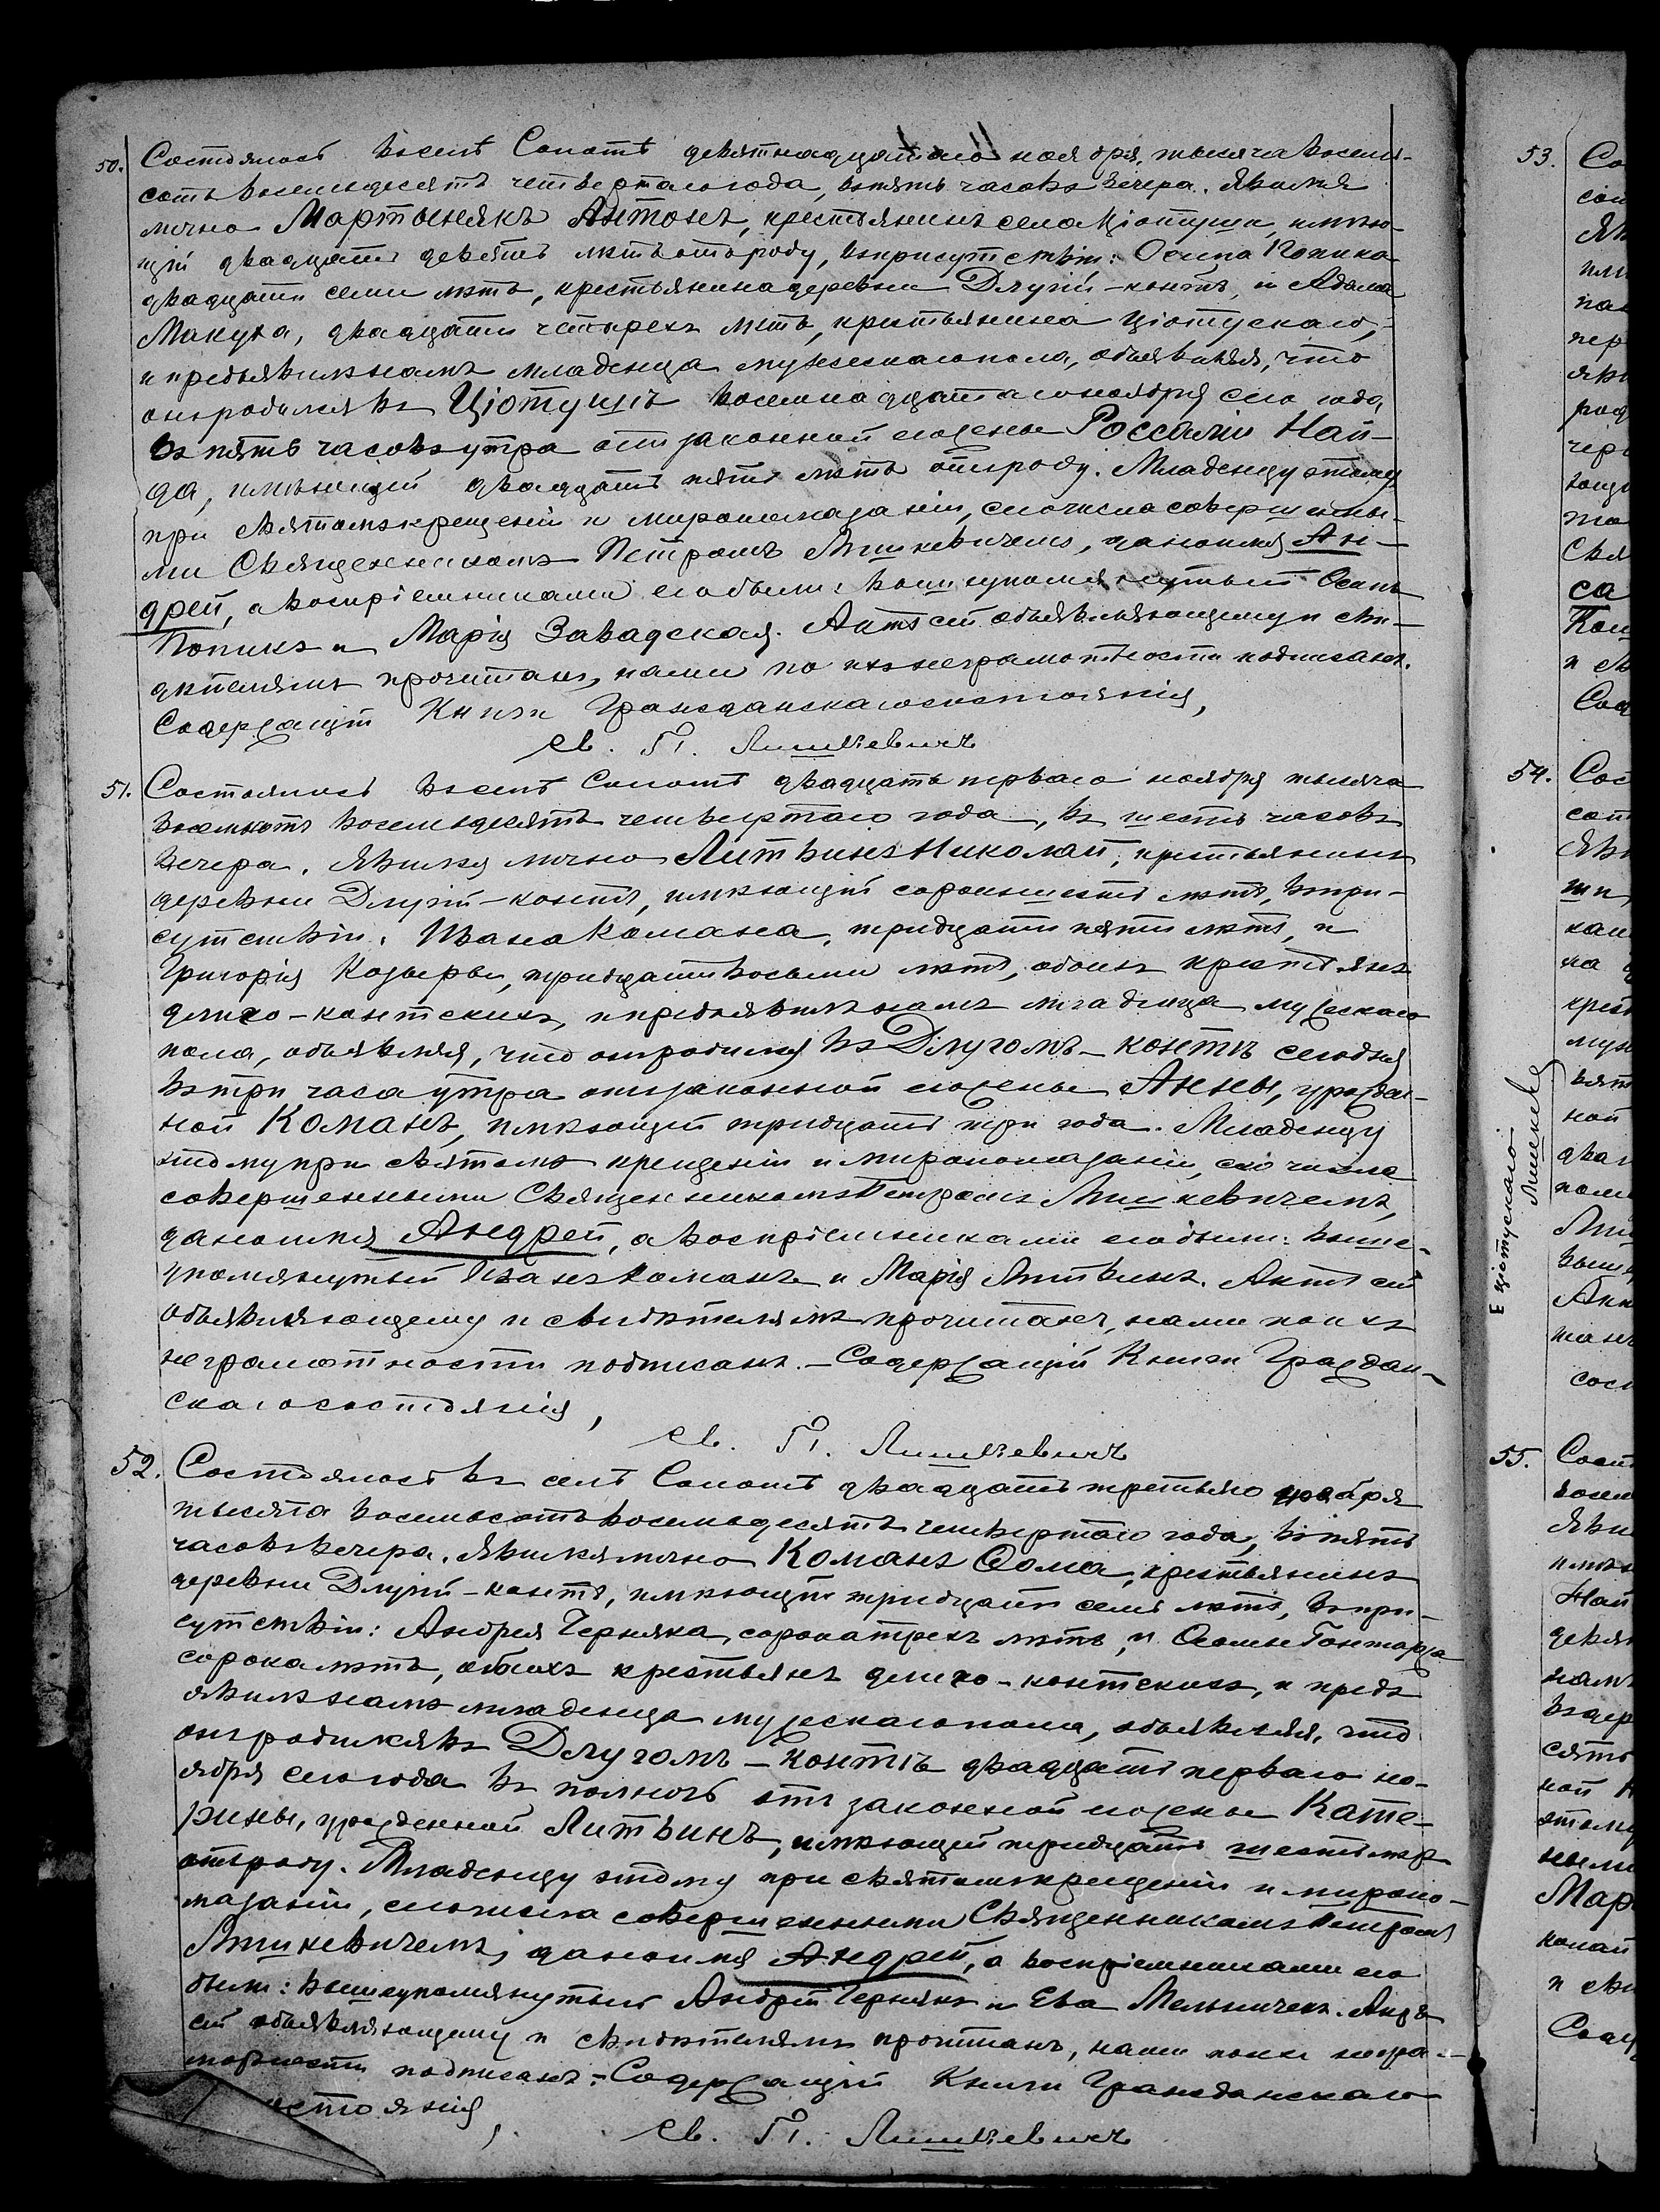 50. Состоялось въ селѣ Сопотѣ девятнадцатаго ноября, тысяча восемь-
сотъ восемьдесятъ четвертаго года, въ пять часовъ вечера. Явился
лично Мартынякъ Антонъ, крестьянинъ села Ціотуши, имѣю-
щій двадцать девять лѣтъ отъ роду, въ присутствіи: Осипа Попика
двадцати семи лѣтъ, крестьянина деревни Длугій-контъ, и Адама
Макуха, двадцати четырехъ лѣтъ, крестьянина ціотускаго,
и предъявилъ намъ младенца мужескаго пола, объявляя, что
онъ родился въ Ціотушѣ восемнадцатаго ноября сего года,
въ пять часовъ утра отъ законной его жены Россаліи Най-
да, имѣющей двадцать пять лѣтъ отъ роду. Младенцу этому
при святомъ крещеніи и миропомазаніи, сего числа совершенны-
ми Священникомъ Петромъ Лишкевичемъ, дано имя Ан-
дрей, а воспріемниками его были: вышеупомянутый Осипъ
Попикъ и Марія Завадская. Актъ сей объявляющему и сви-
дѣтелямъ прочитанъ, нами по ихъ неграмотности подписанъ.
Содержащій Книги Гражданскаго состоянія,
Св. П. Лишкевичъ
51. Состоялось въ селѣ Сопотѣ двадцать перваго ноября тысяча
восемьсотъ восемьдесятъ четвертаго года, въ шесть часовъ
вечера. Явился лично Литвинъ Николай, крестьянинъ
деревни Длугій-контъ, имѣющій сорокъ шесть лѣтъ, въ при-
сутствіи: Ивана Комана, тридцати пяти лѣтъ, и
Григорія Козыры, тридцати восьми лѣтъ, обоихъ крестьянъ
длуго-контскихъ, и предъявилъ намъ младенца мужескаго
пола, объявляя, что онъ родился въ Длугомъ-контѣ сегодня
въ три часа утра отъ законной его жены Анны, урожден-
ной Команъ, имѣющей тридцать три года. Младенцу
этому при святомъ крещеніи и миропомазаніи, сего числа
совершенными Священникомъ Петромъ Лишкевичемъ,
дано имя Андрей, а воспріемниками его были: выше-
упомянутый Иванъ Команъ и Марія Литвинъ. Актъ сей
объявляющему и свидѣтелямъ прочитанъ, нами по ихъ
неграмотности подписанъ. – Содержащій Книги Граждан-
скаго состоянія,
Св. П. Лишкевичъ
52. Состоялось въ селѣ Сопотѣ двадцать третьяго ноября
тысяча восемьсотъ восемьдесятъ четвертаго года, въ пять
часовъ вечера. Явился лично Команъ Ѳома, крестьянинъ
деревни Длугій-контъ, имѣющій тридцать семь лѣтъ, въ при-
сутствіи: Андрея Черняка, сорока трехъ лѣтъ, и Гонтаржа
сорока лѣтъ, обоихъ крестьянъ длуго-контскихъ, и предъ
явилъ намъ младенца мужескаго пола, объявляя, что
онъ родился въ Длугомъ-контѣ двадцать перваго но-
ября сего года въ полночь отъ законной его жены Кате-
рины, урожденной Литвинъ, имѣющей тридцать шесть лѣтъ
отъ роду. Младенцу этому при святомъ крещеніи и миропо-
мазаніи, сего числа совершенными Священникомъ Петромъ
Лишкевичемъ, дано имя Андрей, а воспріемниками его
были: вышеупомянутый Андрей Чернякъ и Ева Мельничекъ. Актъ
сей объявляющему и свидѣтелямъ прочитанъ, нами по ихъ негра-
мотности подписанъ. – Содержащій Книги Гражданскаго
состоянія,
Св. П. Лишкевичъ
53.
54.
Е ціотускаго
Лишкевъ
55.